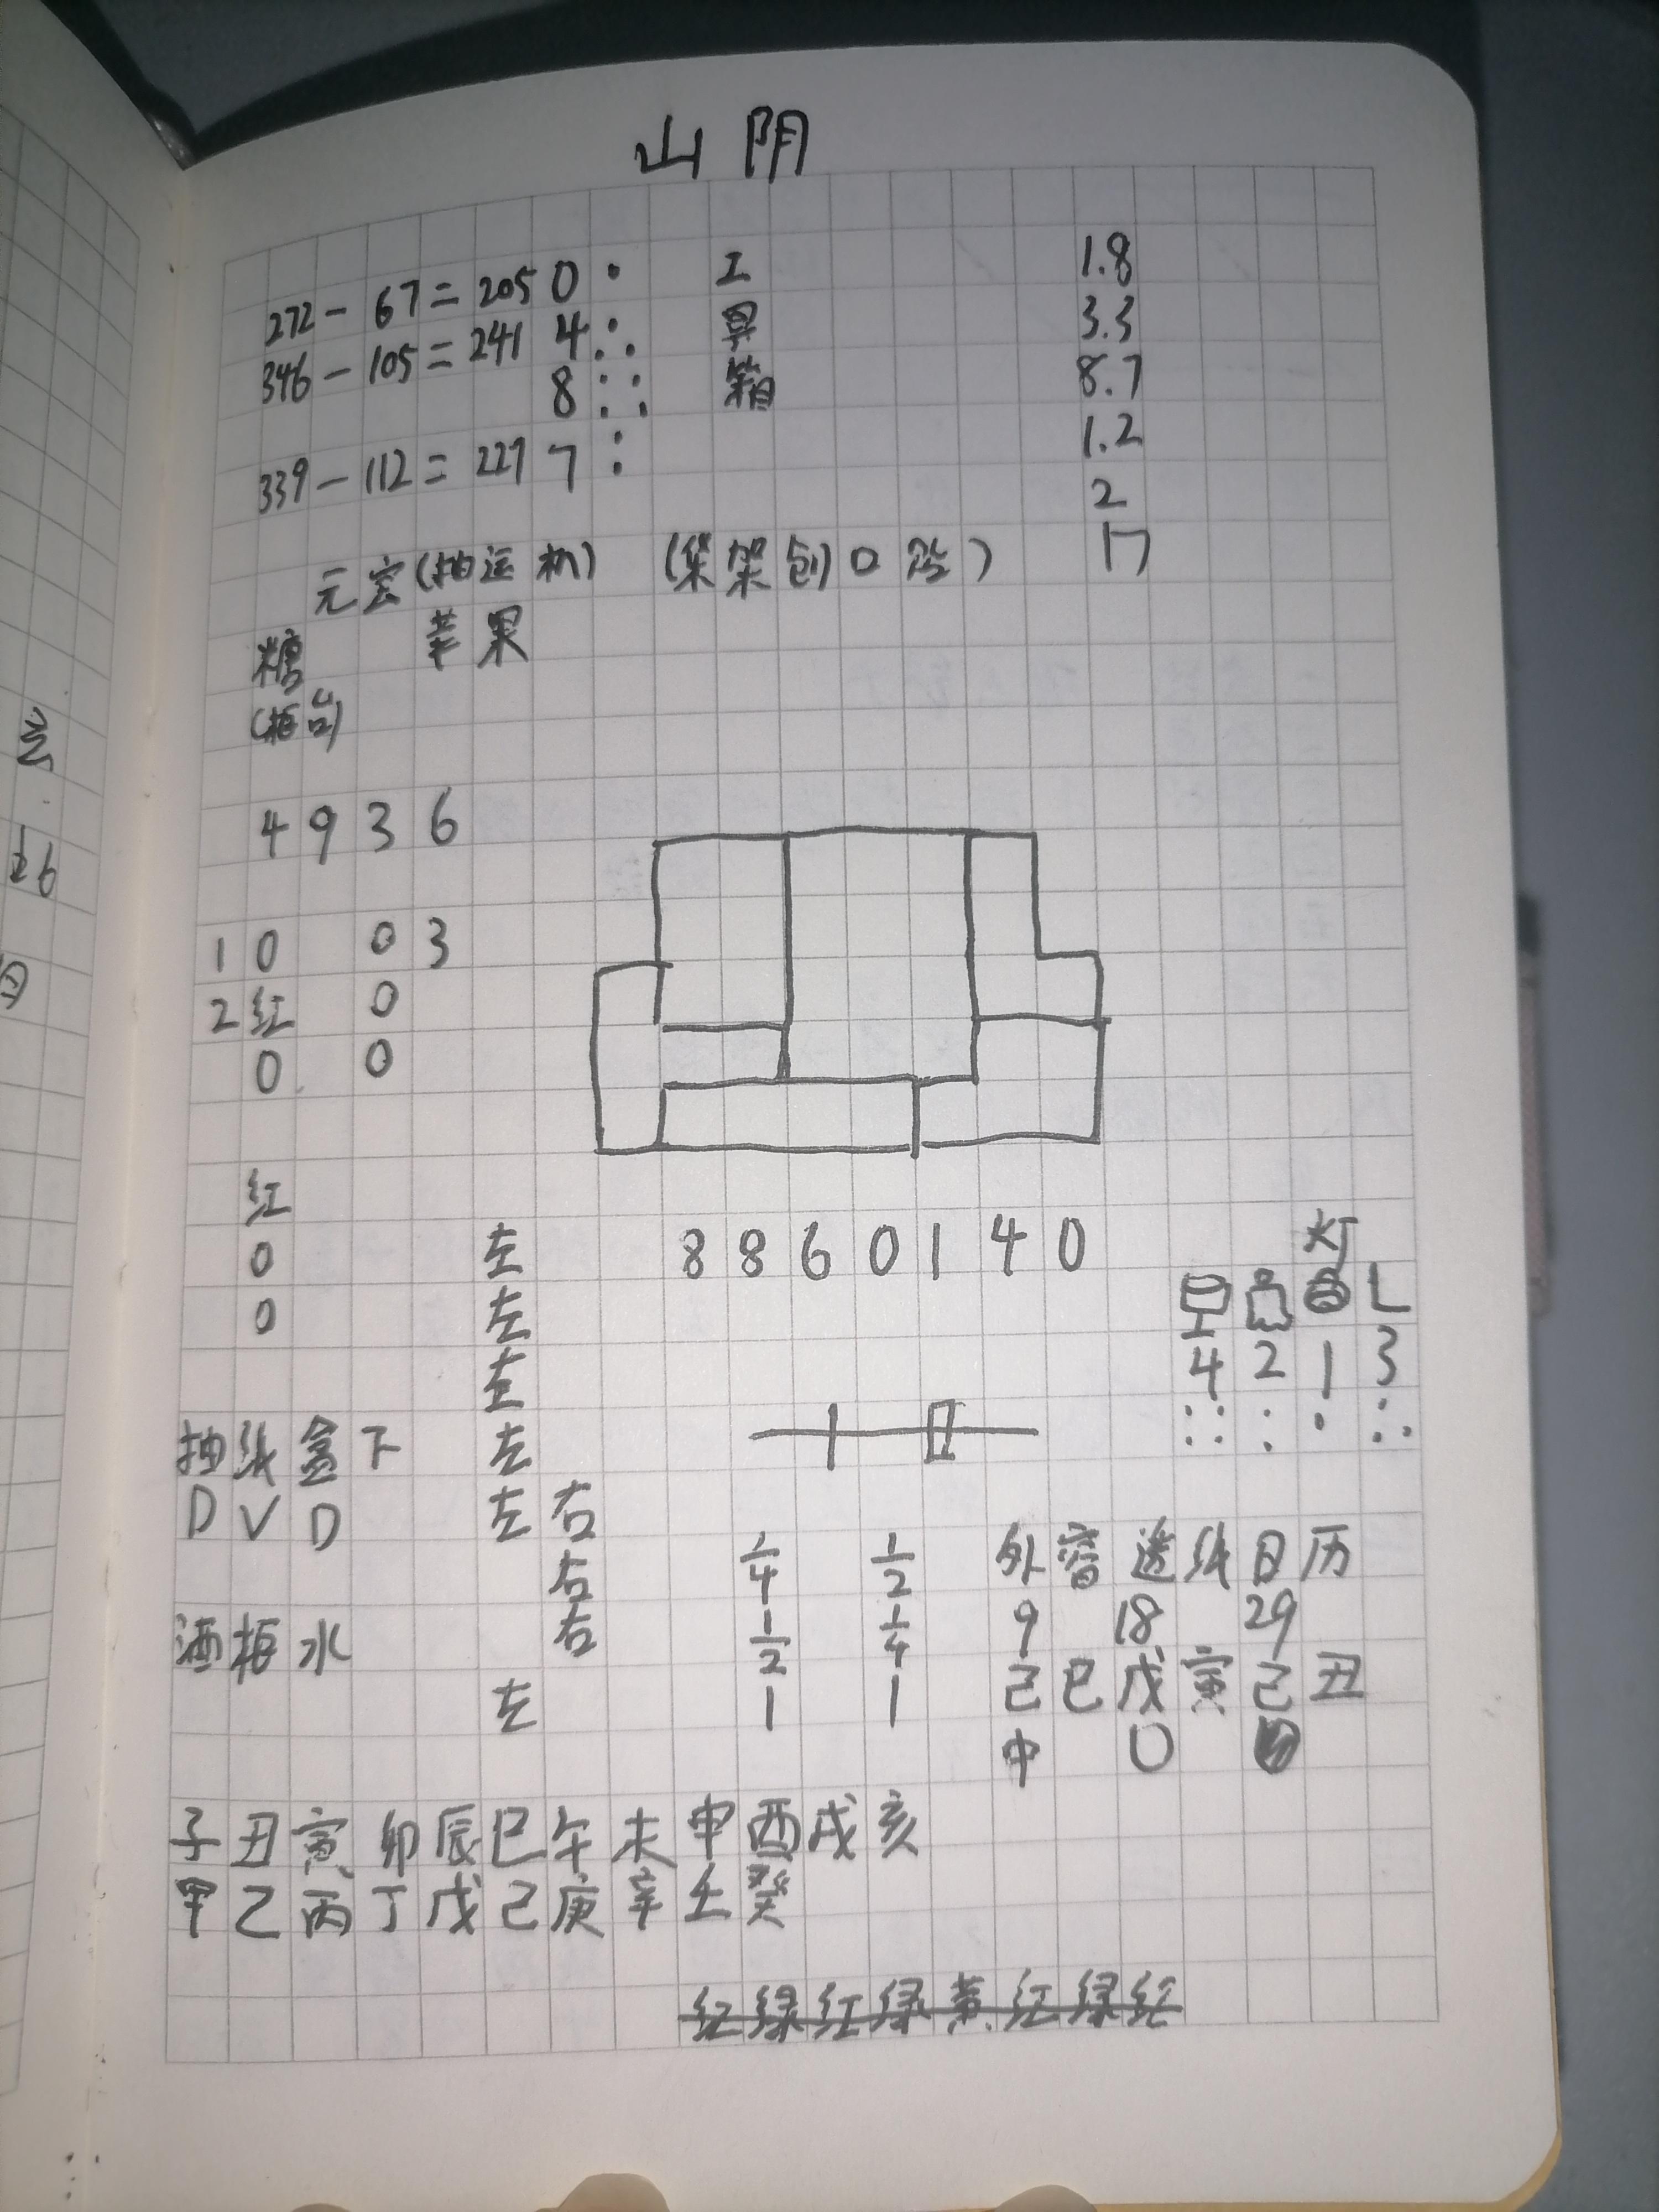 山阴
272-67=205 0 工 1.8
346-105=241 4 具 3.3
8 箱 8.7
339-112=227 7 1.2
2
元宝(抽运机) (货架刨口 ) 17
糖 苹果
(柜台)
4 9 3 6
1 0 0 3
2 红 0
0 0
红
0 左 8 8 6 0 1 4 0 灯
0 左
左 4 2 1 3
抽纸盒下 左
DVD 左 右
右 1/4 1/2 外窗送纸日历
酒柜水 右 1/2 1/4 9 18 29
左 1 1 己巳戊寅己丑
中
子丑寅卯辰巳午未申酉戌亥
甲乙丙丁戊己庚辛壬癸
红绿红绿黄红绿红